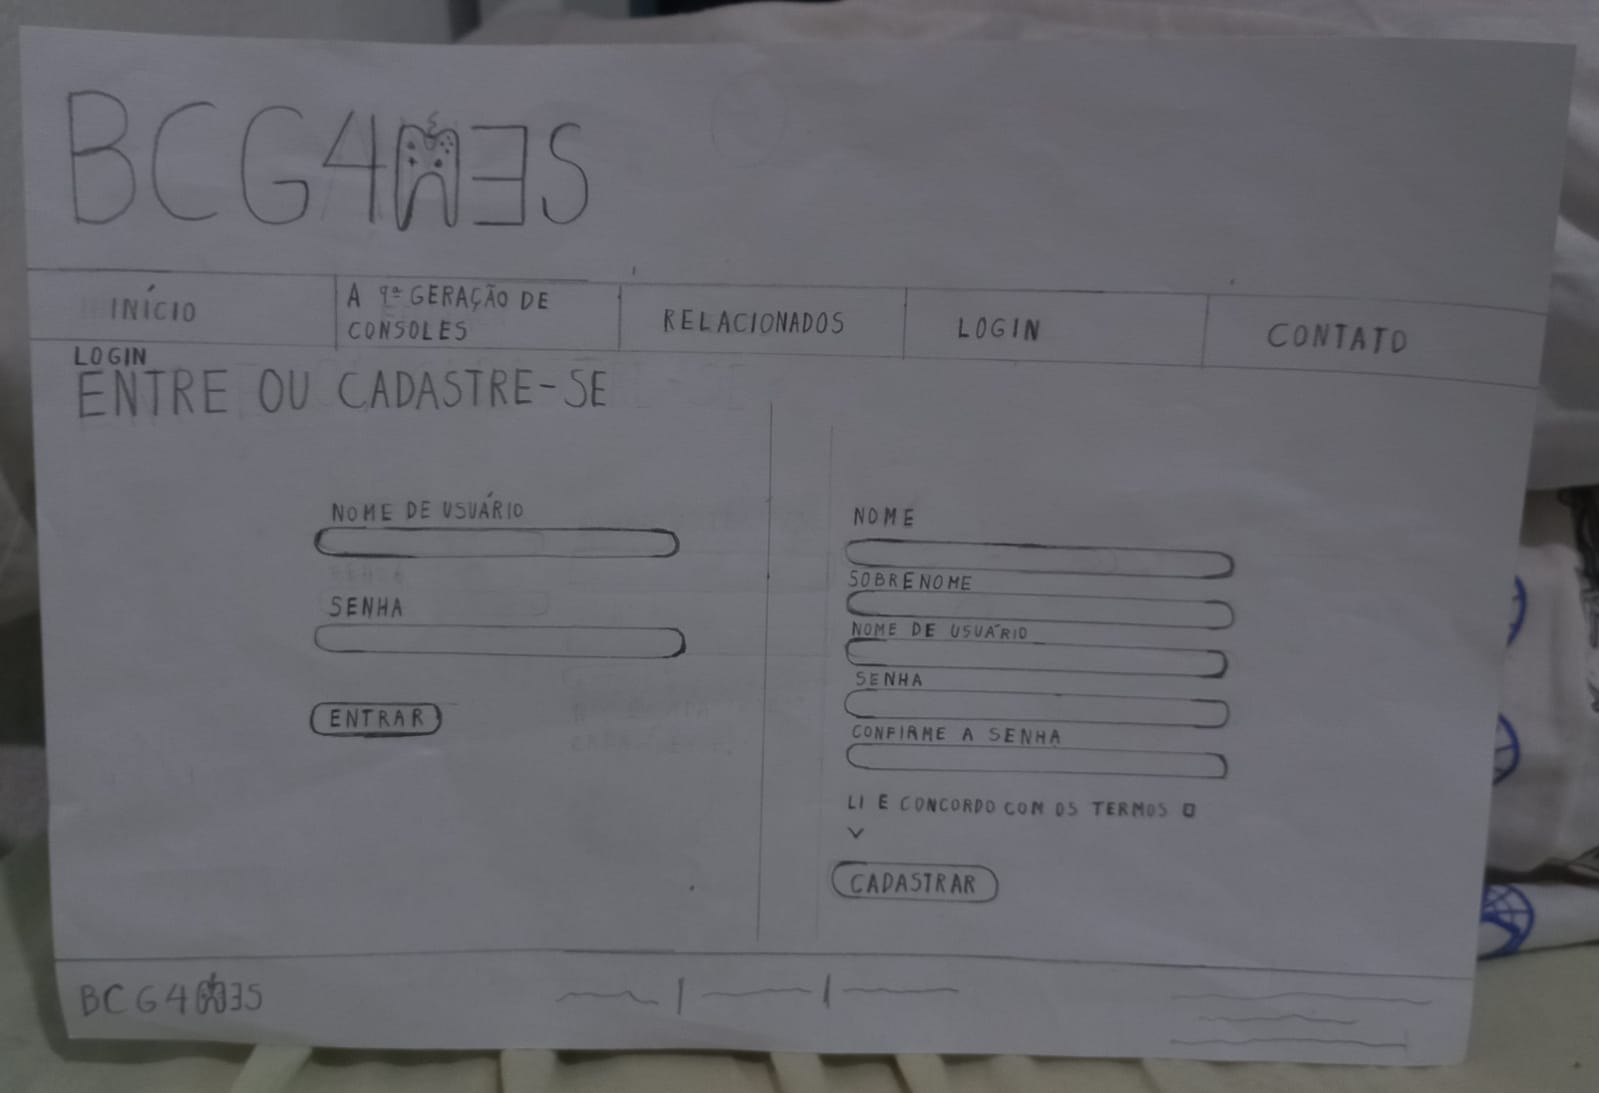 BCG4MƎS
INÍCIO
A 9ª GERAÇÃO DE
CONSOLES
RELACIONADOS
LOGIN
CONTATO
LOGIN
ENTRE OU CADASTRE-SE
NOME DE USUÁRIO
SENHA
ENTRAR
NOME
SOBRENOME
NOME DE USUÁRIO
SENHA
CONFIRME A SENHA
LI E CONCORDO COM OS TERMOS
CADASTRAR
BCG4MƎS